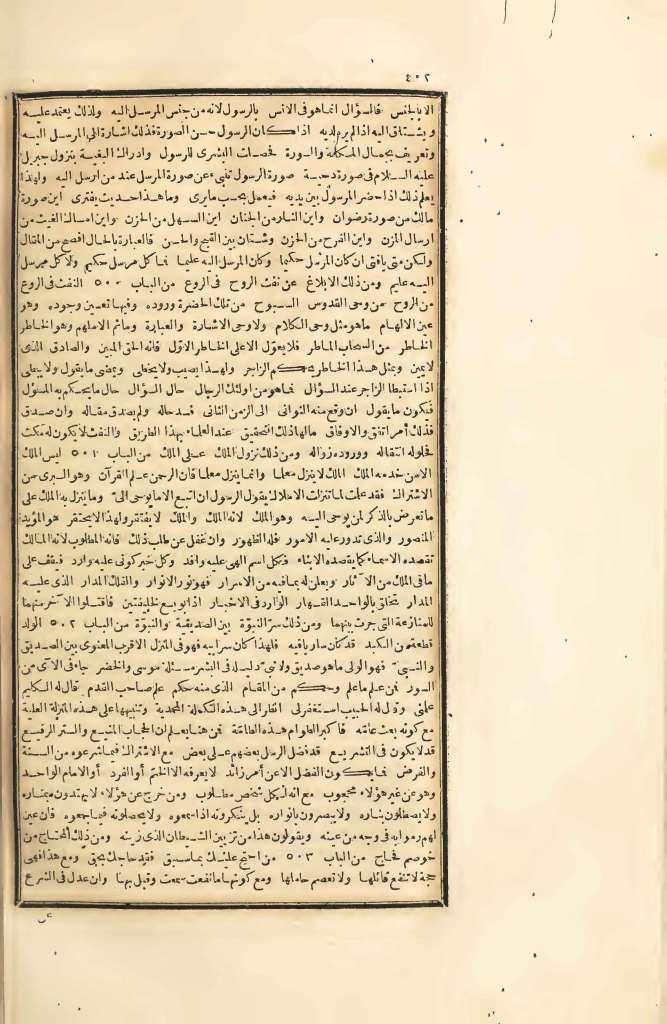 ٤٠٢
الا بالجنس فالسؤال انما هو فى الانس بالرسول لانه من جنس المرسل اليه ولذلك يعتمد عليه
ويشتاق اليه اذا لم يرم لديه اذا كان الرسول حسن الصورة فذلك اشارة الى المرسل اليه
وتعريف بجمال المكلمة والسورة فحصلت البشرى للرسول وادراك البغية بنزول جبريل
عليه السلام فى صورة دحية صورة الرسول تنبىء عن صورة المرسل عند من ارسل اليه ولهذا
يعلم ذلك اذا حضر المرسل بين يديه فيعمل بحسب ما يرى وما هذا حديث يفترى اين صورة
مالك من صورة رضوان واين النار من الجنان اين السهل من الحزن واين امساك الغيث من
ارسال المزن واين الفرح من الحزن وشتان بين القبح والحسن فالعبارة بالحال افصح من المقال
ولكن متى يا فتى ان كان المرسل حكيما وكان المرسل اليه عليما فما كل مرسل حكيم ولا كل مرسل
اليه عليم ومن ذلك الابلاغ عن نفث الروح فى الروع من الباب ٥٠٠ النفث فى الروع
من الروح من وحى القدوس السبوح من تلك الحضرة وروده وفيها تعين وجوده وهو
عين الالهام ما هو مثل وحى الكلام ولا وحى الاشارة والعبارة وما ثم الا ملهم وهو الخاطر
الخاطر من السحاب الماطر فلا يعول الا على الخاطر الاول فانه الحق المبين والصادق الذى
لا يمين وبمثل هذا الخاطر يحكم الزاجر ولهذا يصيب ولا يخطى ويمضى ما يقول ولا يبطى
اذا استبطا الزاجر عند السؤال فما هو من اولئك الرجال حال السؤال حال ما يحكم به المسئول
فتكون ما يقول ان وقع منه التوانى الى الزمن الثانى فسد حاله ولم يصدق مقاله وان صدق
فذلك أمر اتفق والاوفاق مالها ذلك التحقيق عند العلماء بهذا الطريق والنفث لا يكون له مكث
فحلوله انتقاله ووروده زواله ومن ذلك نزول الملك على الملك من الباب ٥٠١ ليس الملك
الا من خدمه الملك الملك لا ينزل معلما وانما ينزل معلما فان الرحمن علم القرآن وهو البرى من
الاشراك فقد علمت لما تنزلت الاملاك يقول الرسول ان اتبع الا ما يوحى الىّ وما ينزل به الملك على
ما تعرض بالذكر لمن يوحى اليه وهو الملك لانه الملك والملك لا يفتقر ولهذا لا يحتقر هو المؤيد
المنصور والذى تدور عليه الامور فله الظهور وان غفل عن طلب ذلك فانه المطلوب لانه المالك
تقصده الاسماء كما يقصده الابناء فكل اسم الهى عليه وافد وكل خبر كونى عليه وارد فيقف على
ما فى الملك من الآثار ويعلن له بما فيه من الاسرار فهو نور الانوار والفلك المدار الذى عليه
المدار تخلق بالواحد القهار الوارد فى الاخبار اذا بويع لخليفتين فاقتلوا الآخر منهما
للمنازعة التى جرت بينهما ومن ذلك سر النبوة بين الصديقية والنبوة من الباب ٥٠٢ الولد
قطعة من الكبد قد كان ساريا فيه فلهذا كان سر ابيه فهو فى المنزل الاقرب المعنوى بين الصديق
والنبى فهو الولى ما هو صديق ولا نبى دليله فى البشر مسئلة موسى والخضر جاء فى الآى من
السور فمن علم ما علم وحكم من المقام الذى منه حكم علم صاحب القدم قال له الكليم
علمنى وقال له الحبيب استغفر لى انظر الى هذه التكملة المحمدية وتنبيهها على هذه المنزلة العلية
مع كونه بعث عامة فاكبر الطوام هذه الطامة فمن هنا يعلم ان الحجاب المنيع والستر الرفيع
قد لا يكون فى التشريع قد فضل الرسل بعضهم على بعض مع الاشتراك فيما شرعوه من السنة
والفرض فما يكون الفضل الا عن أمر زائد لا يعرفه الا الختم أو الفرد أو الامام الواحد
وهو عن غير هؤلاء محجوب مع انه لكل شخص مطلوب ومن خرج عن هؤلاء لا يهتدون بمناره
ولا يصطلون بناره ولا يبصرون بانواره بل ينكرونه اذا سمعوه ولا يحصلونه فيما جمعوه فان عين
لهم رموا به فى وجه من عينه ويقولون هذا من تزيين الشيطان الذى زينه ومن ذلك المحتاج من
خوصم فحاج من الباب ٥٠٣ من احتج عليك بما سبق فقد حاجك بحق ومع هذا فهى
حجة لا تنفع قائلها ولا تعصم حاملها ومع كونها ما نفعت سمعت وقيل بها وان عدل فى الشرع